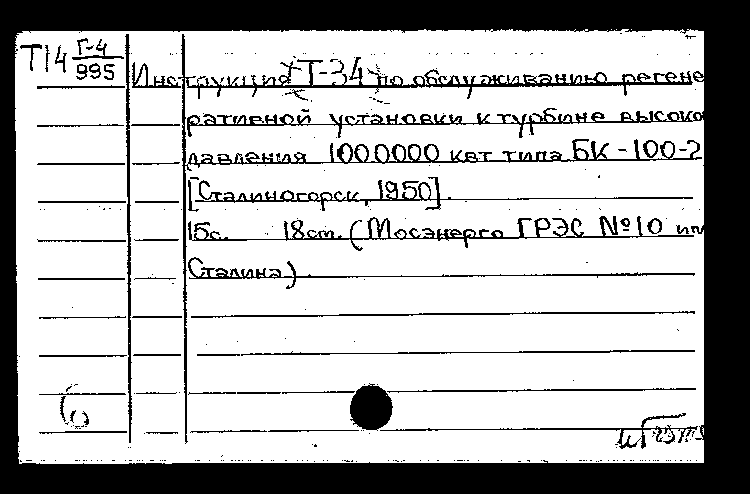 Т14 Г-4
995
Инструкция (Т-34) по обслуживанию регене
ративной установки к турбине высоко
давления 1000000 квт типа БК-100-2
[Сталиногорск, 1950].
15с. 18см. (Мосэнерго ГРЭС №10 им
Сталина).
б